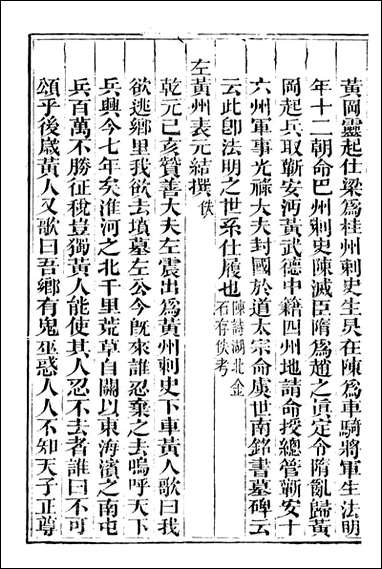 黃岡靈起仕梁爲桂州刺史生炅在陳爲車騎將軍生法明
年十二朝命巴州刺史陳滅臣隋爲趙之眞定令隋亂歸黃
岡起兵取蘄安沔黃武德中籍四州地請命授總管蘄安十
六州軍事光祿大夫封國於道太宗命虞世南銘書墓碑云
云此卽法明之世系仕履也陳詩湖北金石存佚考
左黃州表元結撰佚
乾元己亥贊善大夫左震出爲黃州刺史下車黃人歌曰我
欲逃鄉里我欲去墳墓左公今旣來誰忍棄之去嗚呼天下
兵興今七年矣淮河之北千里荒草自關以東海濱之南屯
兵百萬不勝征稅豈獨黃人能使其人忍不去者誰曰不可
頌乎後歲黃人又歌曰吾鄉有鬼巫惑人人不知天子正尊